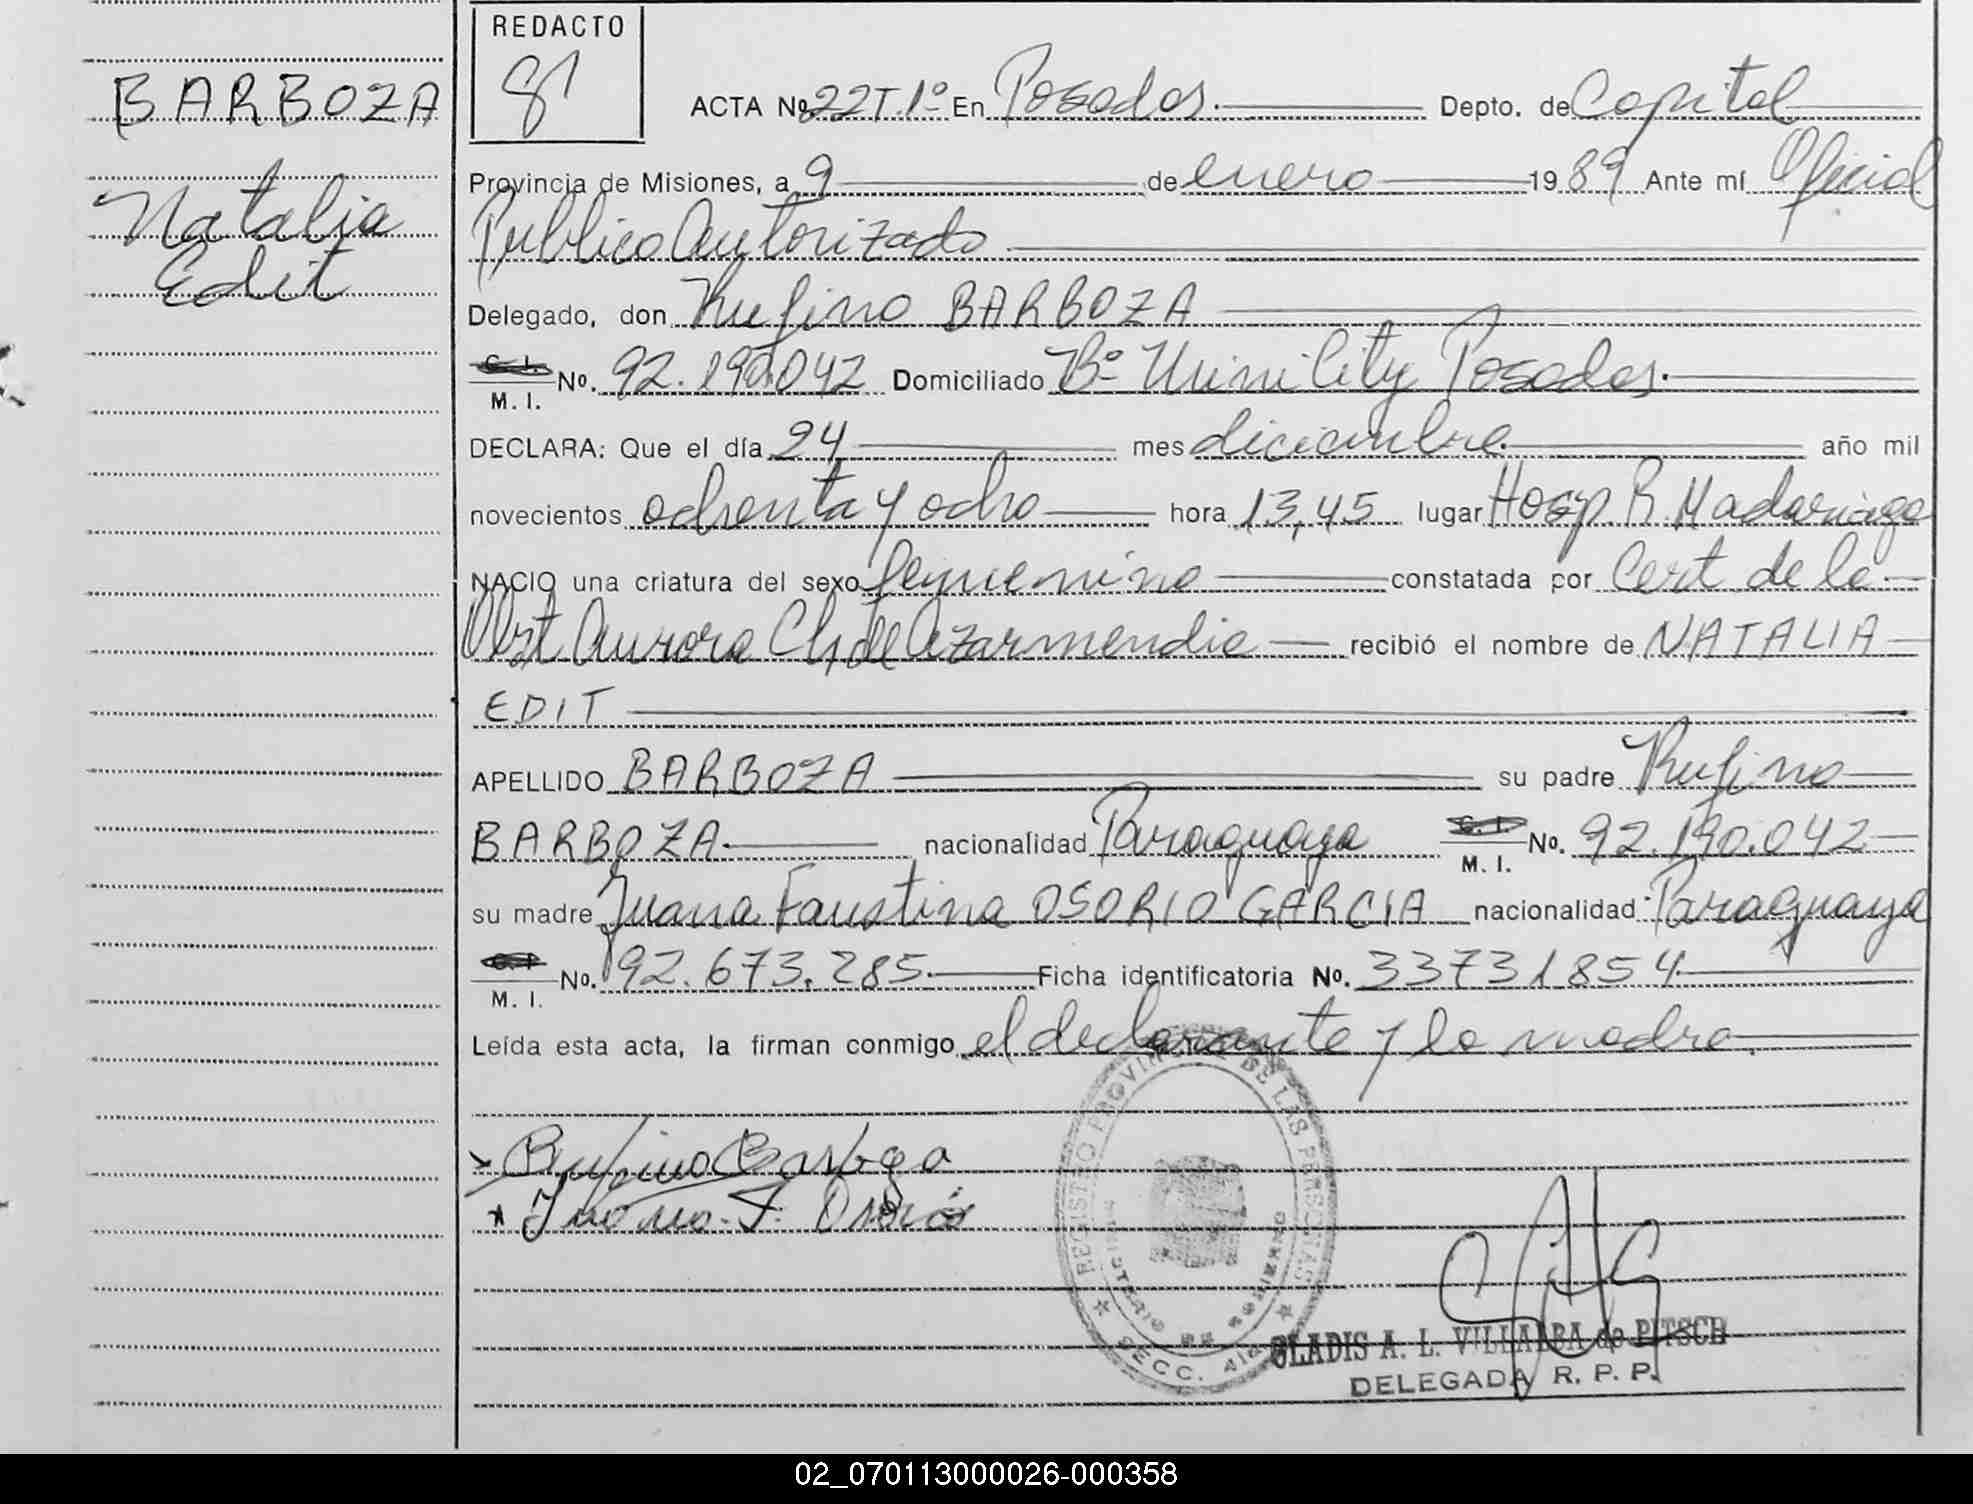 REDACTO
BARBOZA
ACTA Nº 22 T.1º En Posadas. Depto. de Capital
Natalia
Edit
Provincia de Misiones, a 9 de enero 1989 Ante mí Oficial
Publico Autorizado
Delegado, don Rufino BARBOZA
C. I.
M. I. Nº. 92.190.042 Domiciliado Bº Mini City Posadas.
DECLARA: Que el día 24 mes diciembre año mil
novecientos ochenta y ocho hora 13,45 lugar Hosp R. Madariaga
NACIO una criatura del sexo femenino constatada por Cert de la
Obst Aurora Ch de Azarmendia recibió el nombre de NATALIA
EDIT
APELLIDO BARBOZA su padre Rufino
BARBOZA. nacionalidad Paraguaya C. I.
M. I. Nº. 92.190.042
su madre Juana Faustina OSORIO GARCIA nacionalidad Paraguaya
C. I.
M. I. Nº. 92.673.285. Ficha identificatoria Nº. 33731854
Leída esta acta, la firman conmigo el declarante y la madre.
Rufino Barboza
Juana F. Osorio
REGISTRO PROVINCIAL DE LAS PERSONAS
MINISTERIO DE GOBIERNO
SECC.
GLADIS A. L. VILLALBA de PITSCH
DELEGADA R. P. P.
02_070113000026-000358